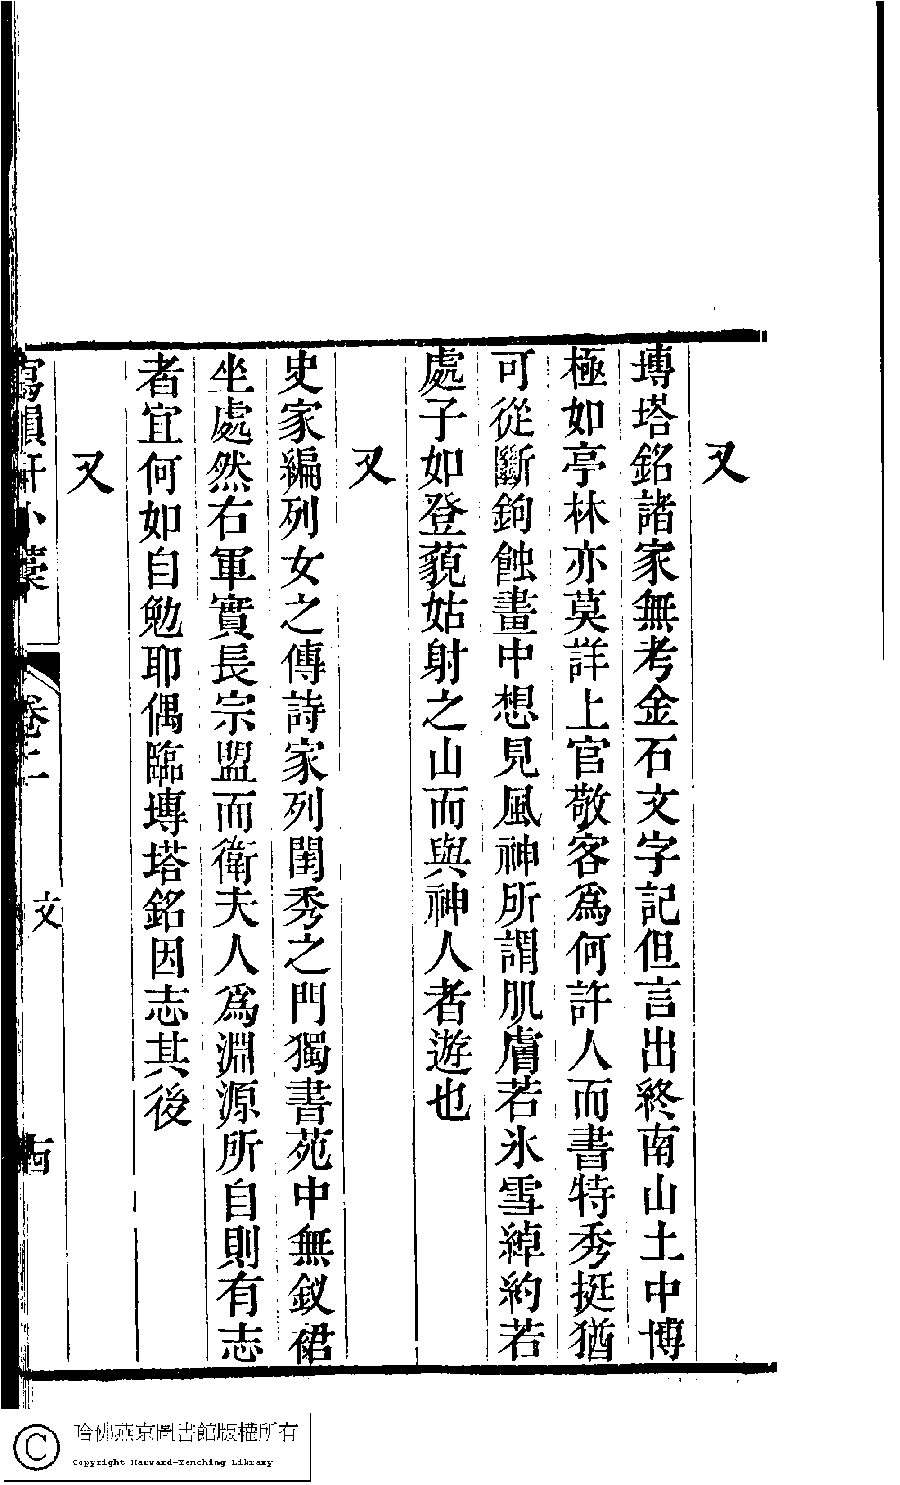 又
塼塔銘諸家無考金石文字記但言出終南山土中博
極如亭林亦莫詳上官敬客爲何許人而書特秀挺猶
可從斷鉤蝕畫中想見風神所謂肌膚若氷雪綽約若
處子如登藐姑射之山而與神人者遊也
又
史家編列女之傳詩家列閨秀之門獨書苑中無釵裙
坐處然右軍實長宗盟而衛夫人爲淵源所自則有志
者宜何如自勉耶偶臨塼塔銘因志其後
又
寫韻軒小藁
卷二
文
哈佛燕京圖書館版權所有
Copyright Harvard-Yenching Library